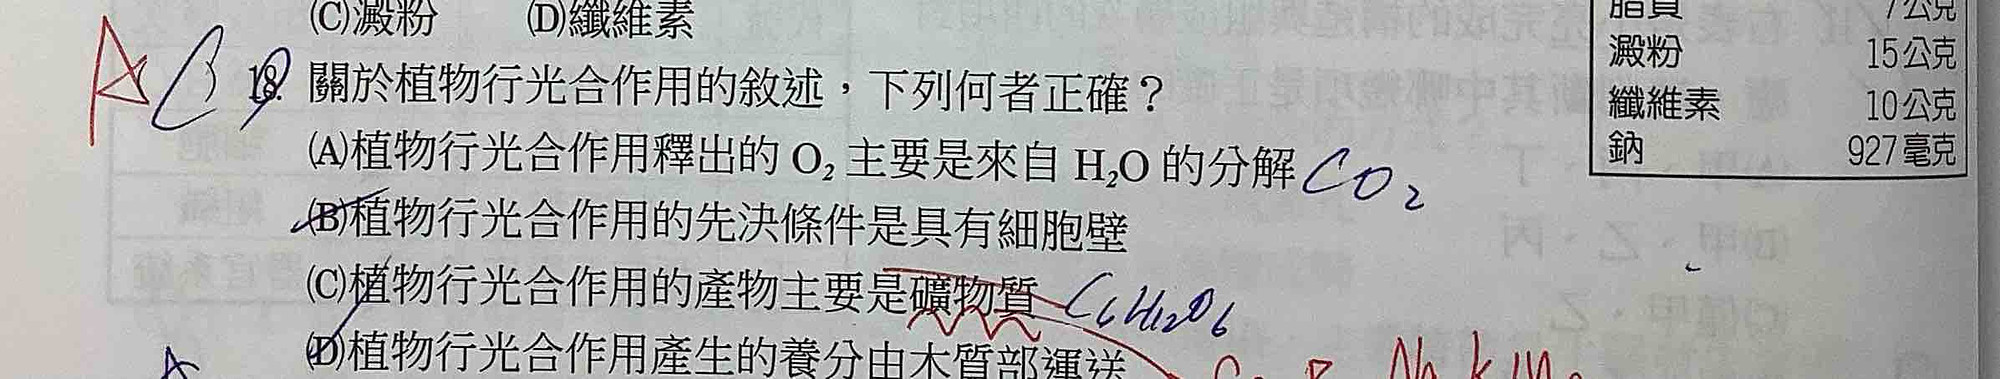 (C)澱粉 (D)纖維素
A C 18. 關於植物行光合作用的敘述，下列何者正確？
(A)植物行光合作用釋出的 O₂ 主要是來自 H₂O 的分解 CO₂
(B)植物行光合作用的先決條件是具有細胞壁
(C)植物行光合作用的產物主要是礦物質 C₆H₁₂O₆
(D)植物行光合作用產生的養分由木質部運送
脂質 7公克
澱粉 15公克
纖維素 10公克
鈉 927毫克